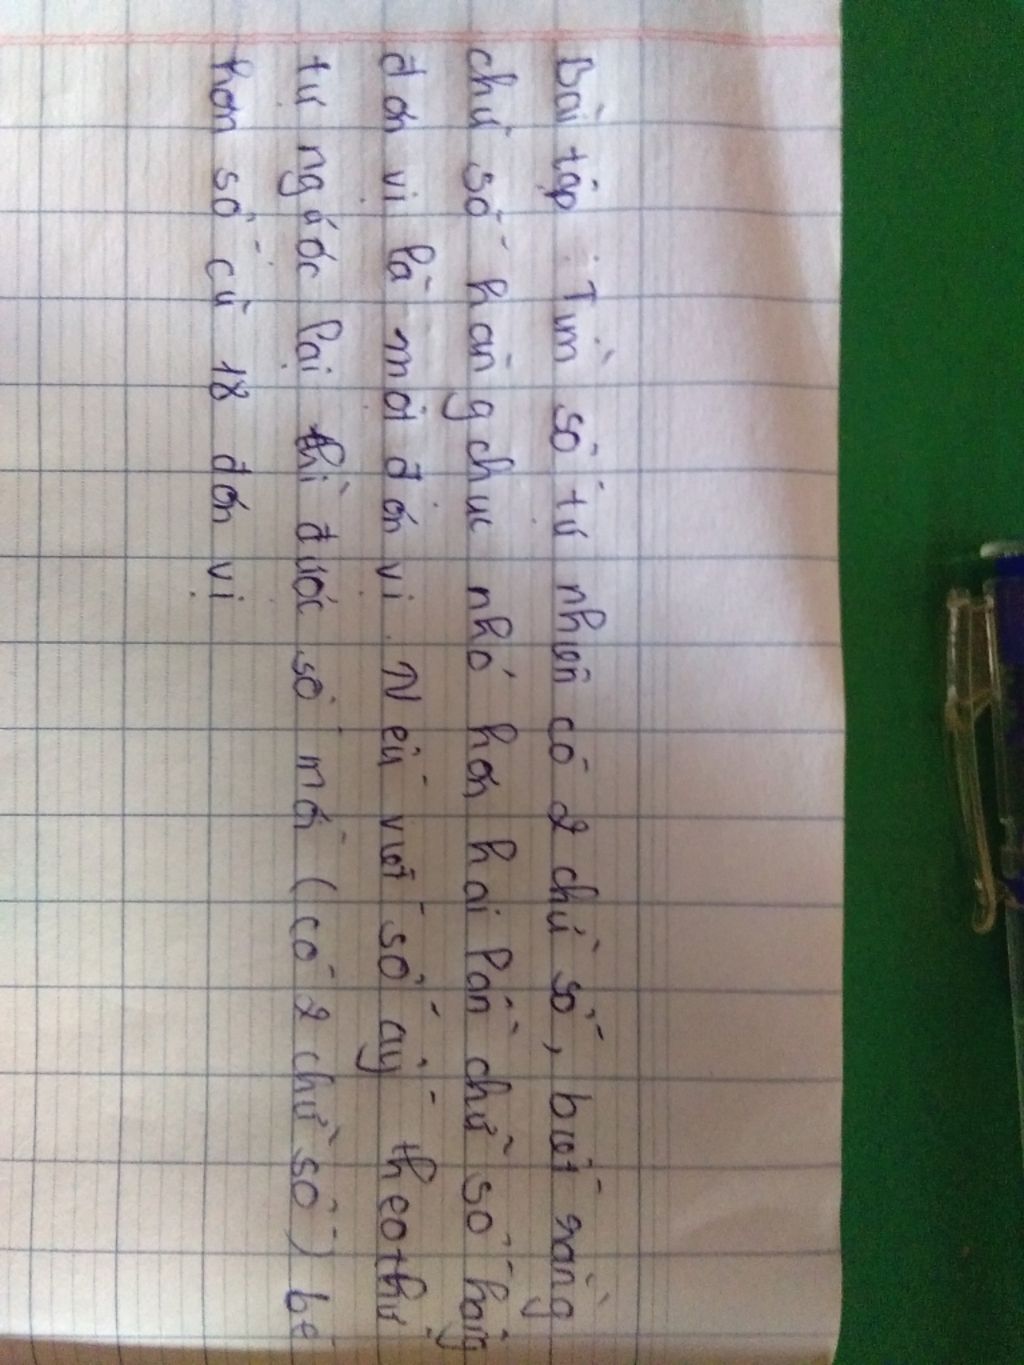 Bài tập : Tìm số tự nhiên có 2 chữ số, biết rằng
chữ số hàng chục nhỏ hơn hai lần chữ số hàng
đơn vị là một đơn vị. Nếu viết số ấy theo thứ
tự ngược lại thì được số mới (có 2 chữ số) bé
hơn số cũ 18 đơn vị